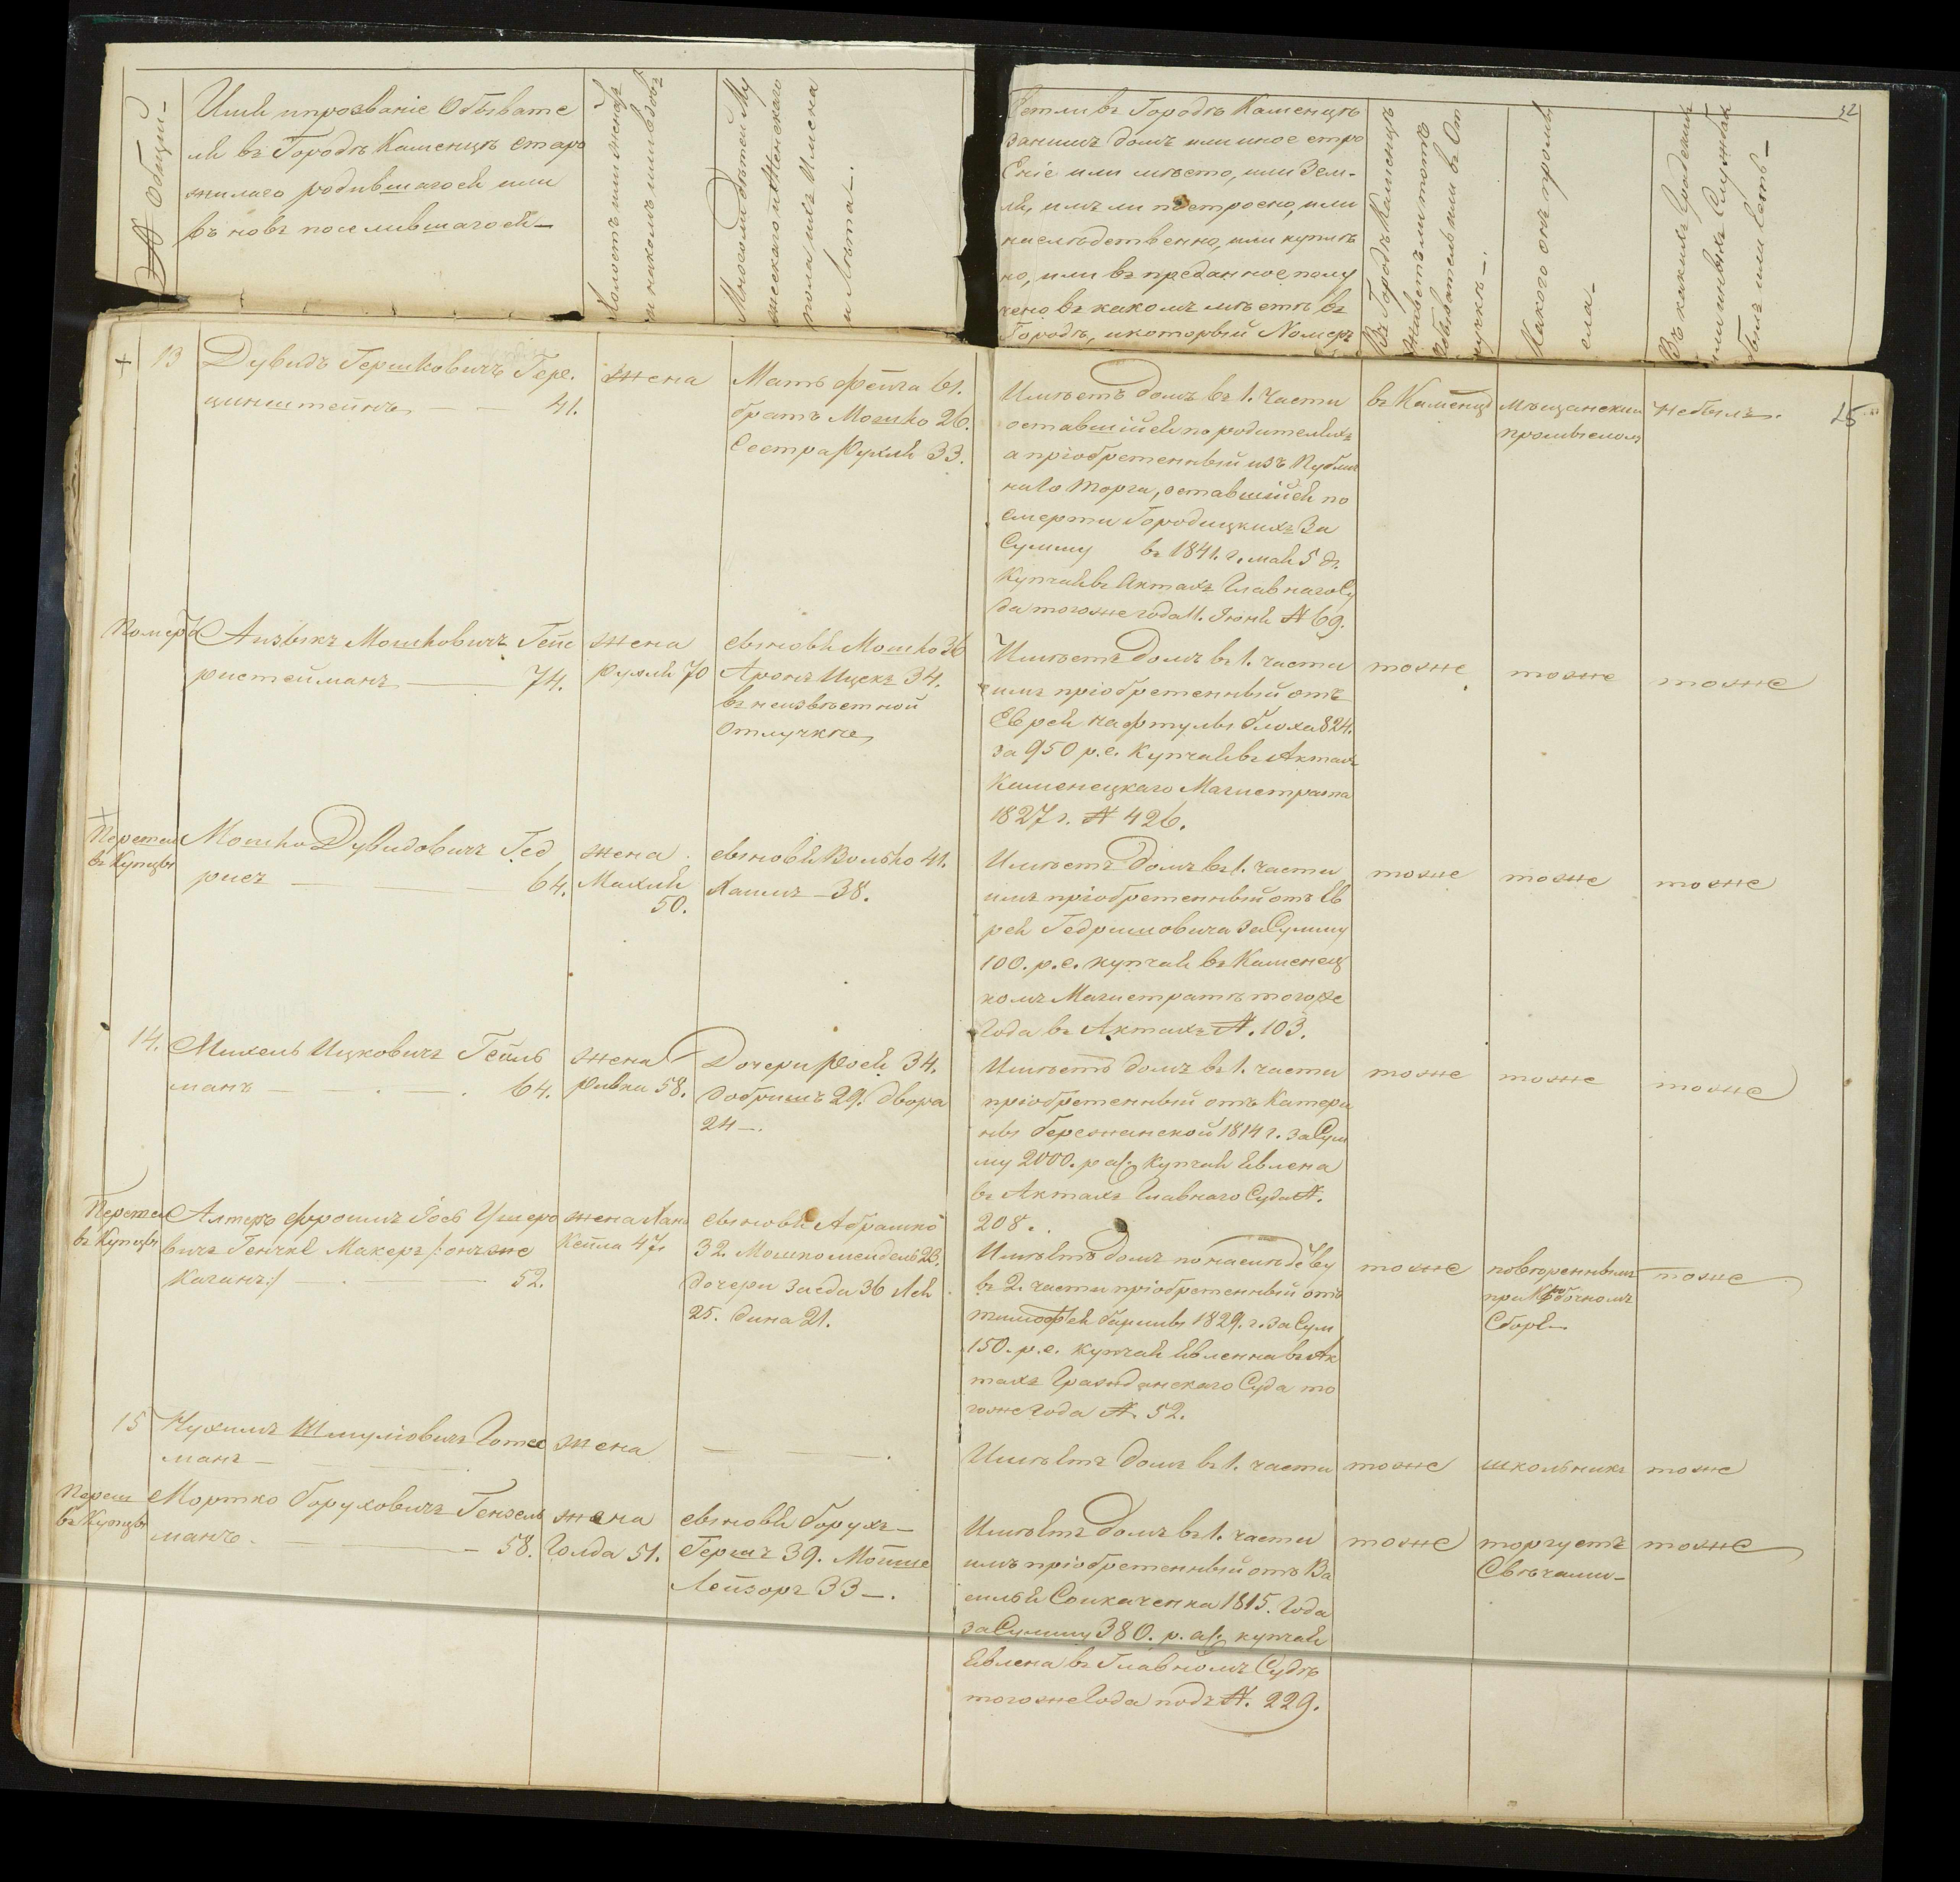 № Общий
Имя и прозваніе Обывате
ля въ Городѣ Каменцѣ старо
жилаго родившагося или
въ новѣ поселившагося
Холостъ или женатъ
и на комъ или вдовъ
Много ли дѣтей Му
жескаго и Женскаго
пола, ихъ Имена
и Лѣта.
Естли въ Городѣ Каменцѣ
за нимъ домъ или иное стро
Еніе или мѣсто, или Зем-
ля, имъ ли построено, или
наслѣдственно, или куплѣ
но, или въ преданное полу
чено въ какомъ мѣстѣ въ
Городѣ, и который Номеръ
Въ Городѣ Каменцѣ
живетъ ли тотъ
Обыватель или въ От
лучкѣ.
Какого онъ промы
сла
Въ какихъ Градскихъ
или иныхъ Службахъ
былъ или есть
52
+ 13
Дувидъ Гершковичъ Гер.
цинштейнъ 41.
жена
Мать Фейга 61.
братъ Мошко 26.
Сестра Рухля 33.
Имѣетъ домъ въ 1. Части
оставшійся по родителяхъ
а пріобретенный изъ Публич
наго Торга, оставшійся по
смерти Городицкихъ За
Сумму въ 1841. г. мая 5 д.
Купчая въ Актахъ Главнаго Су
да того же года 11. Іюня № 69.
въ Каменцѣ
мѣщанским
промысломъ
Небылъ.
15
Померъ
Аизыкъ Мошковичъ Гейс
ристейманъ 74.
жена
Рухля 70
сыновья Мошко 36
Аронъ Ицекъ 34.
въ неизвѣстной
Отлучкѣ
Имѣетъ Домъ въ 1. части
имъ пріобретенный отъ
Еврея Нафтулы блоха 824.
за 950 р. с. Купчая въ Актахъ
Каменецкаго Магистрата
1827 г. № 426.
тоже
тоже
тоже
+
Перечисл
въ Купцы
Мошко Дувидовичъ Гед
рисъ 64.
жена
Махля
50.
сыновья Волько 41.
Хаимъ 38.
Имѣетъ Домъ въ 1. части
имъ пріобретенный отъ Ев
рея Гедримовича За Сумму
100. р. с. купчая въ Каменец
комъ Магистратѣ тогоже
Года въ Актахъ №. 103.
тоже
тоже
тоже
14.
Михель Ицковичъ Гейль
манъ 64.
жена
Ривка 58.
Дочери Рося 34.
Добришъ 29. двора
24.
Имѣетъ домъ въ 1. части
пріобретенный отъ Катери
ны бережанской 1814 г. за Сум
му 2000. р. ас. Купчая Явлена
въ Актахъ Главнаго Суда №.
208.
тоже
тоже
тоже
въ Купцы
Алтеръ Фроимъ Іосъ Ушеро
вичъ Генчке Макеръ /: онъ же
Каганъ :/ 52.
жена Хана
Кейла 47.
сыновья Абрашко
32. Мошко мендель 23.
дочери Загда 36 Лея
25. дина 21.
Имѣетъ домъ по наслѣдству
въ 2. части пріобретенный отъ
тимофея 1829. г. за Сум
150. р. с. купчая Явленна въ Ак
тахъ Гражданскаго Суда то
гоже Года №. 52.
тоже
повѣреннымъ
при Коробочномъ
Сборе
тоже
15
Нухимъ Шмуліовичъ Готес
манъ
жена
Имѣетъ Домъ въ 1. части
тоже
школьникъ
тоже
въ Купцы
Мортко боруховичъ Гензель
манъ. 58.
жена
Голда 51.
сыновья борухъ
Гершъ 39. Мойше
Лейзоръ 33.
Имѣетъ Домъ въ 1. части
имъ пріобретенный отъ Ва
силья Сошкаченка 1815. Года
за Сумму 380. р. ас. купчая
Явлена въ Главномъ Судѣ
тогоже Года подъ №. 229.
тоже
торгуетъ
Свѣчами
тоже